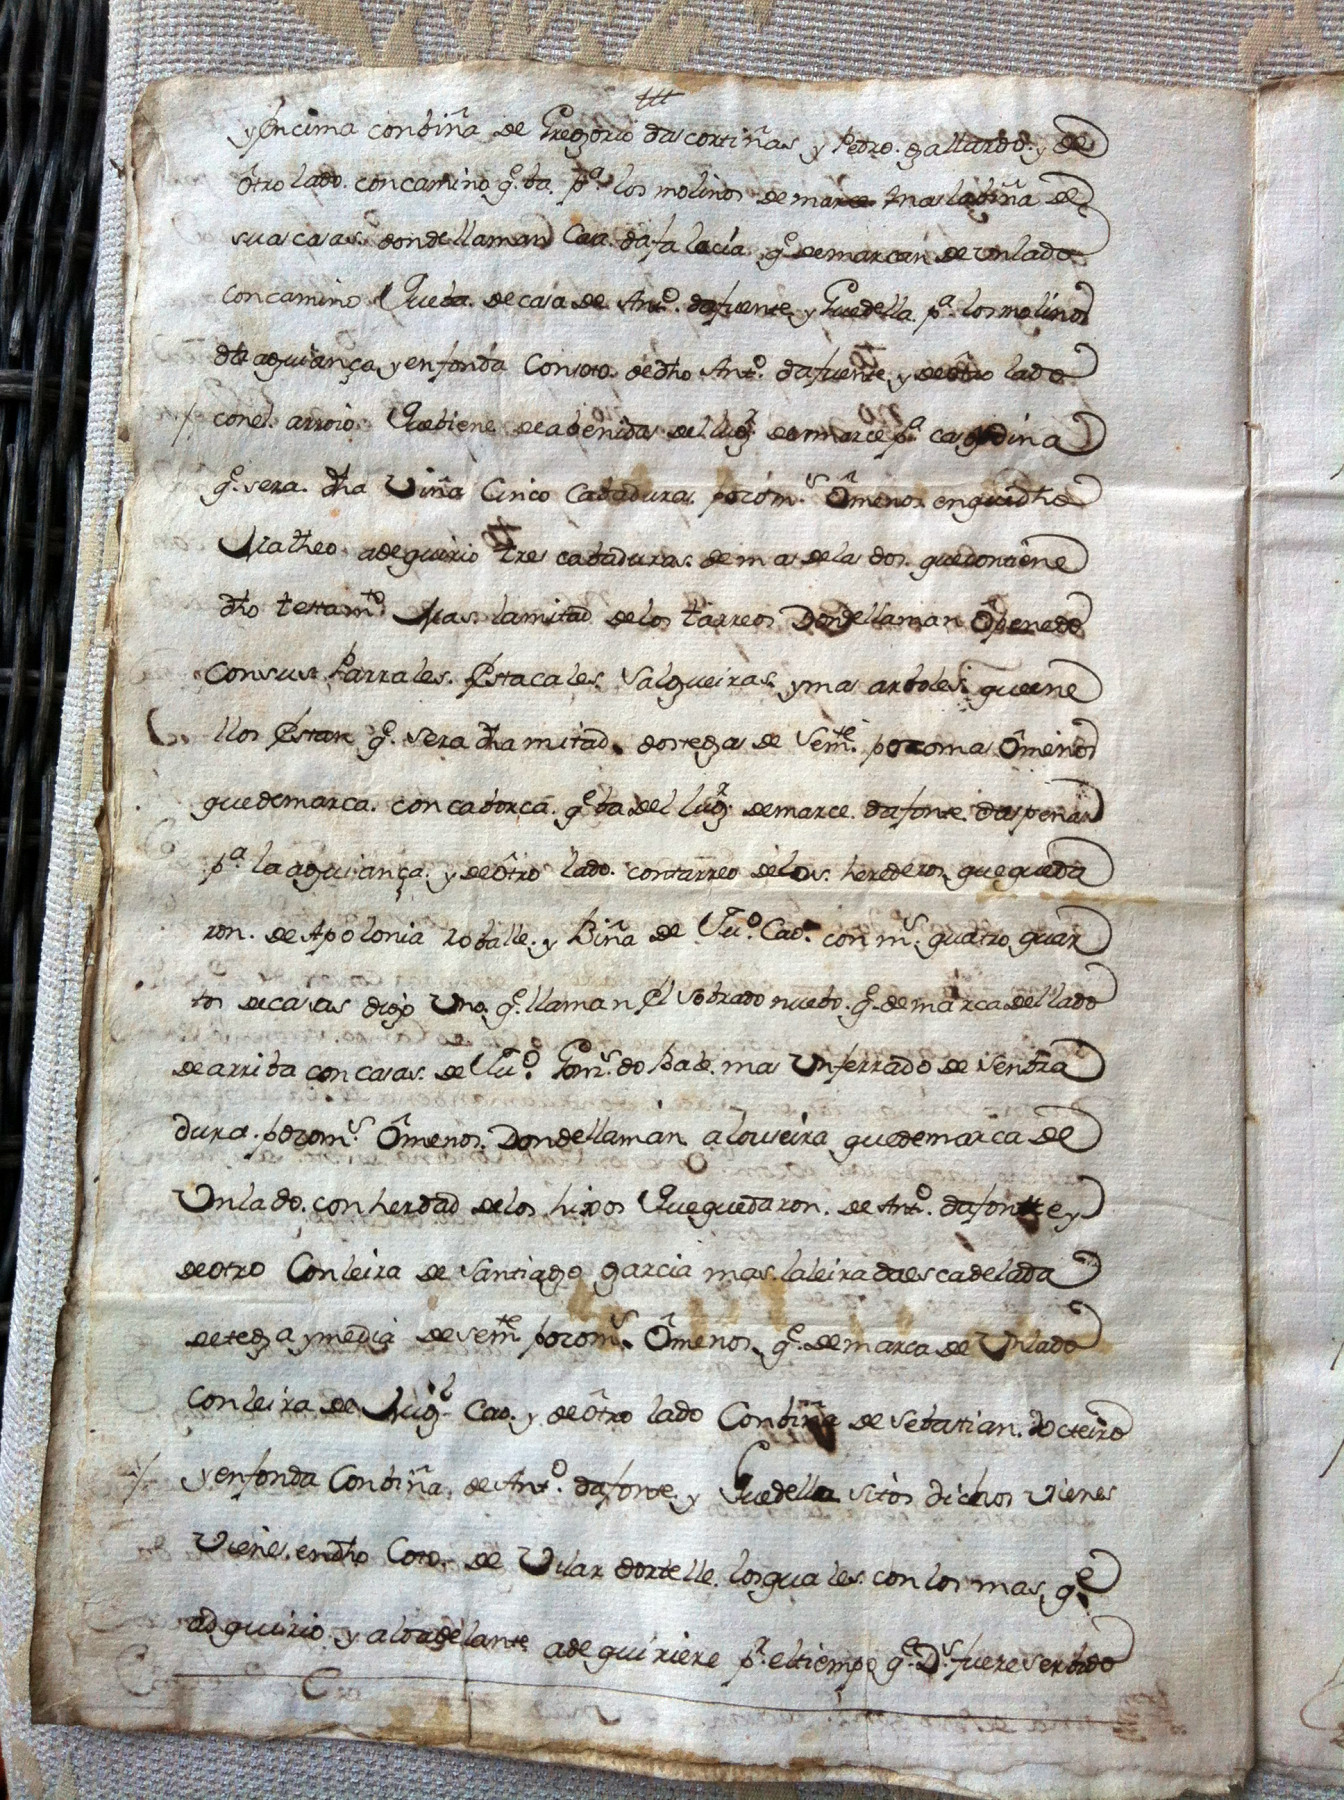 y Encima conbiña de Gregorio dascortiñas y Pedro gallardo y de
otro lado concamino q.e ba p.a los molinos de marce mas labiña de
suas casas donde llaman Casa dafalacia q.e demarcan de Un lado
con camino Que ba de casa de Ant.o dafuente y Guedella p.a los molinos
da aguiança y enfonda Consoto de dho Ant.o dafuente y de otro lado
con el arroio Que biene de abenidas del lug.r de marce p.a casadina
q.e sera dha Viña Cinco Cabaduras pocom.s Omenos enque dho
Matheo adequirio tres cabaduras de mas de las dos que contiene
dho testam.to Mas lamitad de los tarreos Dondellaman Openedo
Consus Parrales Estacales Salgueiras ymas arboles que ene
llos Estan q.e sera dha mitad dostegas de Sem.te pocomas Omenos
que demarca con caborca q.e ba del lug.r de marce dafonte daspenas
p.a la aguiança y de Otro lado contarreo de los herederos que queda
ron de Apolonia Roballe y Biña de Ju.o Cao con m.s quatro quar
tos de casas digo Uno q.e llaman El sobrado nuebo q.e demarca del lado
de arriba con casas de Ju.o Gom.s do Pade mas Unferrado de senbra
dura pocom.s Omenos Dondellaman alouseira que demarca de
Un lado con herdad de los hixos Que quedaron de Ant.o dafonte y
de otro Conleira de Santiago garcia mas laleira da escadelada
detega ymedia de sem.te pocom.s Omenos q.e demarca de Un lado
Conleira de Mig.l Cao y de Otro lado Conbiña de Sebastian Docteiro
y enfonda Conbiña de Ant.o dafonte y Guedella sitos dichos vienes
Vienes endho Coto de Vilar dortelle losquales con los mas q.e
adquirio y aloadelante adequiriere p.r eltiempo q.e D.s fuere serbido